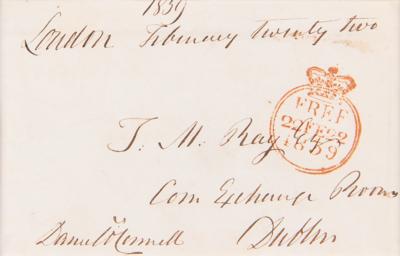 1839
London February twenty two
FREE
22 FE 22
1839
T. M. Ray Esq
Corn Exchange Rooms
Daniel O'Connell Dublin